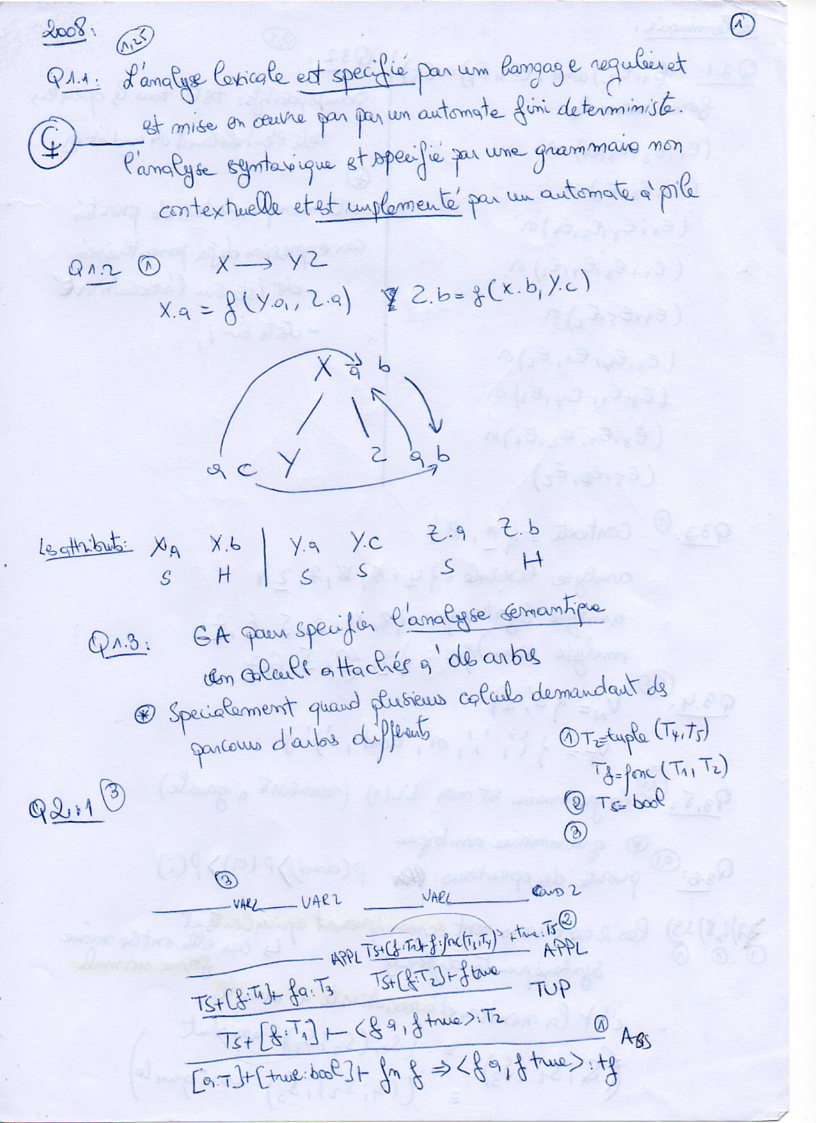 2008:
1,25
1
Q1.1: L'analyse lexicale est specifié par um langage regulier et
est mise en œuvre par par un automate fini deterministé.
l'analyse syntaxique est specifié par une grammaire non
contextuelle et est implementé par un automate à pile
Q1.2 ① X → YZ
X.a = f(Y.a, Z.a) Z.b = f(X.b, Y.c)
X a b
a c Y Z a b
Les attributs: X.A X.b | Y.a Y.c Z.a Z.b
S H | S S S H
Q1.3: GA pour specifier l'analyse semantique
calculs attachés a' des arbres
⊛ Specialement quand plusieurs calculs demandant des
parcours d'arbres differents
① T2=tuple (T4,T5)
Tf=fonc (T1, T2)
② T5= bool
③
Q2.1 ③
③
VAR2 VAR2 VAR2 2
APPL TS+[f:T1]+f:fnc(T1,T4) + true:T5 ② APPL
TS+[f:T1]+fa:T3 TS+[f:T2]+ftrue
TUP
TS+[f:T1] ⊢ <f a, f true>:T2
① ABS
[a:T]+[true:bool]+ fn f ⇒ <f a, f true> : tf